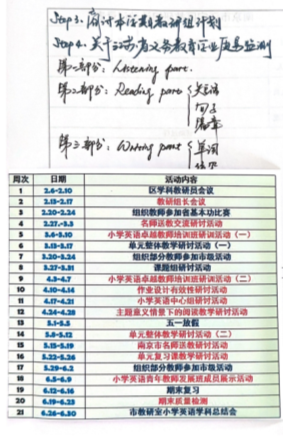 Step 3. 商讨本学期教研组计划
Step 4. 关于江苏省义务教育学业质量监测
第一部分: Listening part.
第二部分: Reading part 关键词
句子
篇章
第三部分: Writing part 单词
周次 日期 活动内容
1 2.6-2.10 区学科教研员会议
2 2.13-2.17 教研组长会议
3 2.20-2.24 组织教师参加省基本功比赛
4 2.27-3.3 名师送教交流研讨活动
5 3.6-3.10 小学英语卓越教师培训班研训活动（一）
6 3.13-3.17 单元整体教学研讨活动（一）
7 3.20-3.24 组织部分教师参加市级活动
8 3.27-3.31 课题组研讨活动
9 4.3-4.7 小学英语卓越教师培训班研训活动（二）
10 4.10-4.14 作业设计有效性研讨活动
11 4.17-4.21 小学英语中心组研讨活动
12 4.24-4.28 主题意义情景下的阅读教学研讨活动
13 5.1-5.5 五一放假
14 5.8-5.12 单元整体教学研讨活动（二）
15 5.15-5.19 南京市名师送教活动
16 5.22-5.26 单元复习课教学研讨活动
17 5.29-6.2 组织部分教师参加市级活动
18 6.5-6.9 小学英语青年教师发展班成员展示活动
19 6.12-6.16 期末复习
20 6.19-6.23 期末质量检测
21 6.26-6.30 市教研室小学英语学科总结会